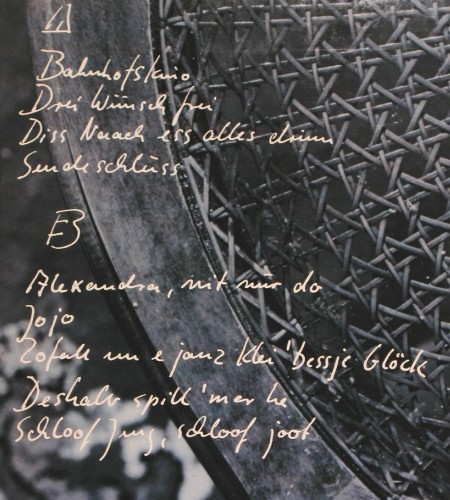 A
Bahnhofskino
Drei Wünsch frei
Diss Naach ess alles drinn
Sendeschluss
B
Alexandra, nit nur do
Jojo
Zofall un e janz klei' bessje Glöck
Deshalv spill' mer he
Schloof Jung, schloof joot